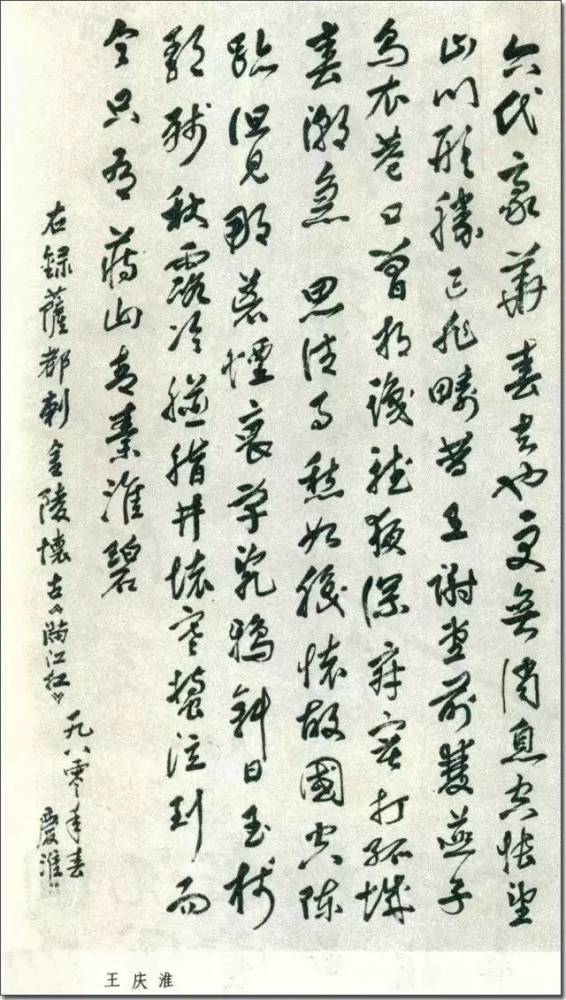 六代豪華春去也更無消息空悵望
山川形勝已非疇昔王謝堂前雙燕子
烏衣巷口曾相識聽夜深寂寞打孤城
春潮急 思往事愁如織懷故國空陳
跡但見那荒煙衰草亂鴉斜日玉樹
歌殘秋露冷胭脂井壞寒螿泣到而
今只有蔣山青秦淮碧
右録薩都剌金陵懷古《滿江紅》
一九八零年春
慶淮
王庆淮